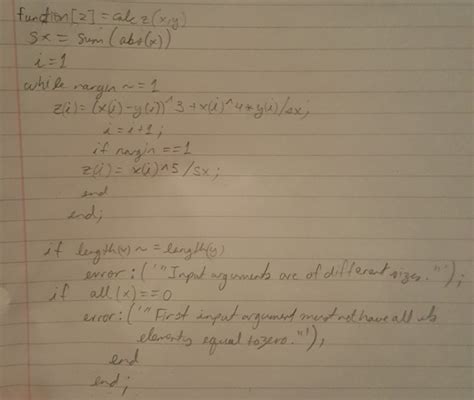 function[z] = calc z(x,y)
sx = sum(abs(x))
i=1
while nargin ~= 1
z(i)= (x(i)-y(i))^3 + x(i)^4 * y(i)/sx;
i = i+1;
if nargin ==1
z(i) = x(i)^5/sx;
end
end;
if length(x) ~= length(y)
error:('"Input arguments are of different sizes."');
if all(x)==0
error:('"First input argument must not have all its
elements equal to zero."');
end
end;